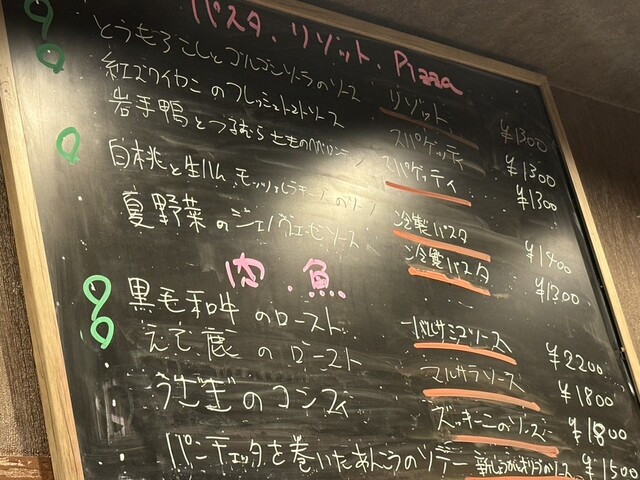 パスタ、リゾット、Pizza
とうもろこしとゴルゴンゾーラのソース リゾット ¥1300
紅ズワイガニのフレッシュトマトソース スパゲッティ ¥1300
岩手鴨とつるむらさきの スパゲッティ ¥1300
白桃と生ハム モッツァレラチーズの 冷製パスタ ¥1400
夏野菜のジェノヴェーゼソース 冷製パスタ ¥1300
肉・魚
黒毛和牛のロースト バルサミコソース ¥2200
えぞ鹿のロースト マルサラソース ¥1800
うさぎのコンフィ ズッキーニのソース ¥1800
パンチェッタを巻いたあんこうのソテー ¥1500